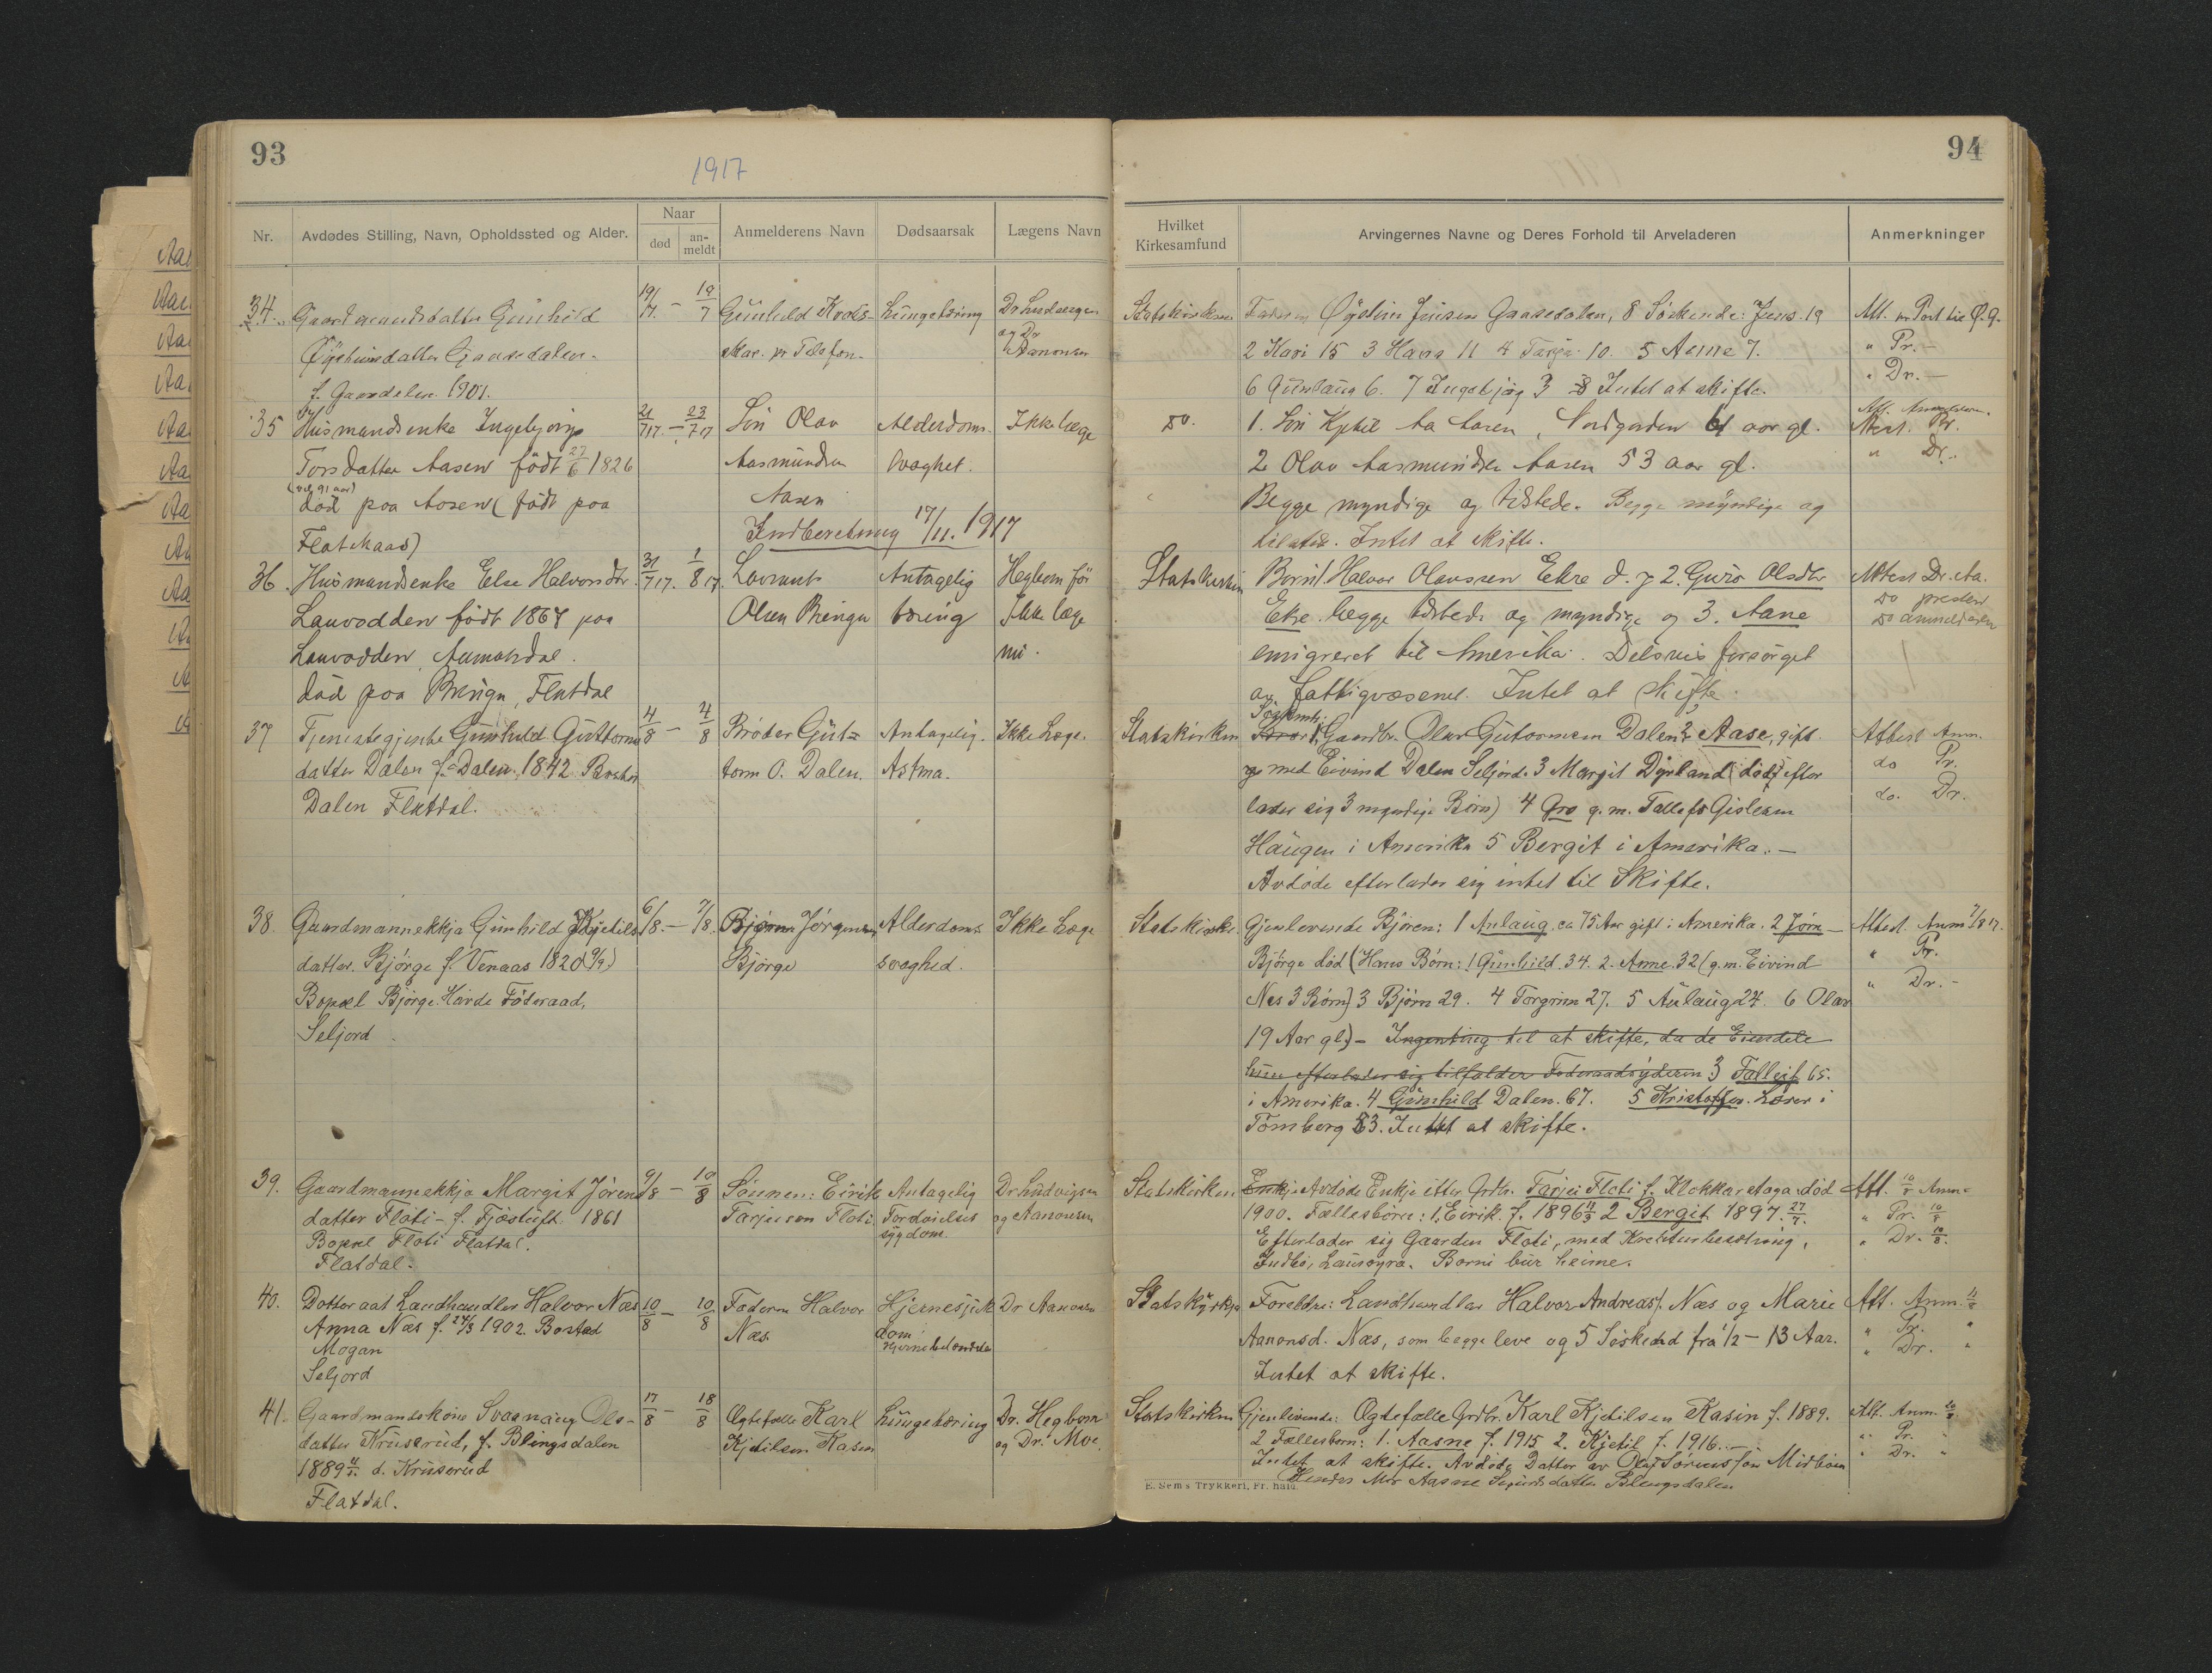 93
1917
Nr.
Avdødes Stilling, Navn, Opholdssted og Alder.
Naar
død
an-
meldt
Anmelderens Navn
Dødsaarsak
Lægens Navn
34.
Gaardmandsdatter Gunhild
Øysteinsdatter Gaasedalen.
f. Gaasdalen 1901.
19/7. — 19/7
Gunhild
pr Telefon.
Lungetæring
Dr Ludvigsen
og Dr
Aanonsen
35
Husmandsenke Ingebjørg
Torsdatter Aasen født 27/6 1826
(ved 91 aar)
død paa Aasen (født paa
Flatskaas)
21/7 17. — 23/7 17
Søn Olav
Aasmundsen
Aasen
Alderdoms
svaghet.
Ikke læge
Indberetning 17/11. 1917
36.
Husmandsenke Else Halvorsdtr.
Lauvodden født 1867 paa
Lauvodden, Aamotsdal.
død paa Bringa, Flatdal
31/7 17. 1/8 17.
Lavrants
Olsen Bringa
Antagelig
tæring
Hegbom før
Ikke læge
nu.
37
Tjenestegjente Gunhild Guttorms
datter Dalen f. Dalen 1842
Dalen Flatdal.
4/8 — 4/8
Broder Gut-
torm O. Dalen.
Antagelig.
Astma.
Ikke Læge.
38.
Gaardmannekkja Gunhild Kjetils
datter. Bjørge f. Venaas 1820
Bopæl Bjørge. Havde Føderaad,
Seljord
6/8. — 7/8.
Bjørn Jørgensen
Bjørge
Alderdoms
svaghed.
Ikke Læge
39.
Gaardmannekkja Margit Jørens
datter Floti - f. Tjøstuft 1861
Bopæl Floti Flatdal.
Flatdal.
9/8 — 10/8
Sønnen: Eirik
Tarjeisen Floti.
Antagelig
Fordøielses
sygdom.
Dr Ludvigsen
og Aanonsen
40.
Dotter aat Landhandler Halvor Næs
Anna Næs f. 24/3 1902. Bosted
Mogan
Seljord
10/8 — 10/8
Faderen Halvor
Næs.
Hjernesjuk
dom
Dr Aanonsen
41.
Gaardmandskone Svanaug Ols-
datter Kruserud, f. Blingsdalen
1889 d. Kruserud
Flatdal.
17/8 — 18/8
Ogtefælle Karl
Kjetilsen Rasen
Lungetæring
Dr. Hegbom
og Dr. Moe.
94
Hvilket
Kirkesamfund
Arvingernes Navne og Deres Forhold til Arveladeren
Anmerkninger
Statskirken
Faderen Øystein Jensen Gaasedalen, 8 Søskende: Jens. 19
2 Kari 15 3 Hans 11 4 Tarjei 10. 5 Anne 7.
6 Gunlaug 6. 7 Ingebjøg 3 Intet at skifte.
Att. pr Post til Ø.G.
" Pr. —
" Dr. —
Do.
1. Søn Kjetil Aa Aasen, Nordgarden 61 aar gl.
2 Olav Aasmundsen Aasen 53 aar gl.
Begge myndige og tilstede. Begge myndige og
tilstede. Intet at skifte.
Attest. Pr.
" Dr.
Statskirken
Børn: 1. Halvor Olavssen Ekre d. 2. Guro Olsdtr
Ekre begge tilstede og myndige og 3. Aane
emigreret til Amerika. Delsvis forsørget
av fattigvæsenet. Intet at skifte.
Attest Dr. Aa.
Do presten
Do anmelderen
Statskirken
Søskende:
1. Gaardbr. Olav Gutormsen Dalen 2 Aase, gift
med Eivind Dalen Seljord. 3 Margit Dyrland (død) efter
lader sig 3 myndige Børn) 4 Gro g.m. Tallefs Gisleson
Haugen i Amerika 5 Bergit i Amerika. —
Avdøde efterlader sig intet til Skifte.
Attest Anm.
do Pr.
do. Dr.
Statskirke.
Gjenlevende Bjøren: 1 Anlaug ca 75 Aar gift i Amerika. 2 Jørn —
Bjørge død (Hans Børn: 1 Gunhild. 34. 2. Anne. 32 (g.m. Eivind
Nes 3 Børn) 3 Bjørn 29. 4 Torgrim 27. 5 Aulaug 24. 6 Olav
19 Aar gl.) — Ingenting til at skifte, da de Eiendele
hun efterlader sig tilfalder Føderaadsyderen 3 Tallejf 65.
i Amerika. 4 Gunhild Dalen. 67. 5 Kristoffer. Lærer i
Tømberg 53. Intet at skifte.
Attest. Anm 7/8 17.
" Pr.
" Dr. —
Statskirken
Enkje Avdøde Enkje etter Grdbr. Tarjei Floti f. Klokkarstoga død
1900. Fællesbørn: 1, Eirik. f. 1896 11/3 2 Bergit 1897. 27/7.
Efterlader sig Gaarden Floti, med Kreaturbesætning,
Indbo, Lausøyra. Borni bur heime.
Att. 10/8 Anm.
" Pr. 10/8
" Dr. 10/8.
Statskyrkja
Foreldre: Landhandlar Halvor Andreas. Næs og Marie
Aanonsd. Næs, som begge leve og 5 Søskend fra 1/2 — 13 Aar.
Intet at skifte.
Att. Anm. 11/8
" Pr. "
" Dr. "
Statskirken
Gjenlivende: Ogtefælle Grdbr. Karl Kjetilsen Rasin f. 1889.
2 Fællesborn: 1. Aasne f. 1915 2. Kjetil f. 1916. —
Intet at skifte. Avdøde Datter av Olaf Midbøen
Hendes Mor Aasne Sigurdsdatter Blengsdalen
Att. Anm.
" Pr. "
" Dr. "
E. Sem's Trykkeri, Fr. hald.